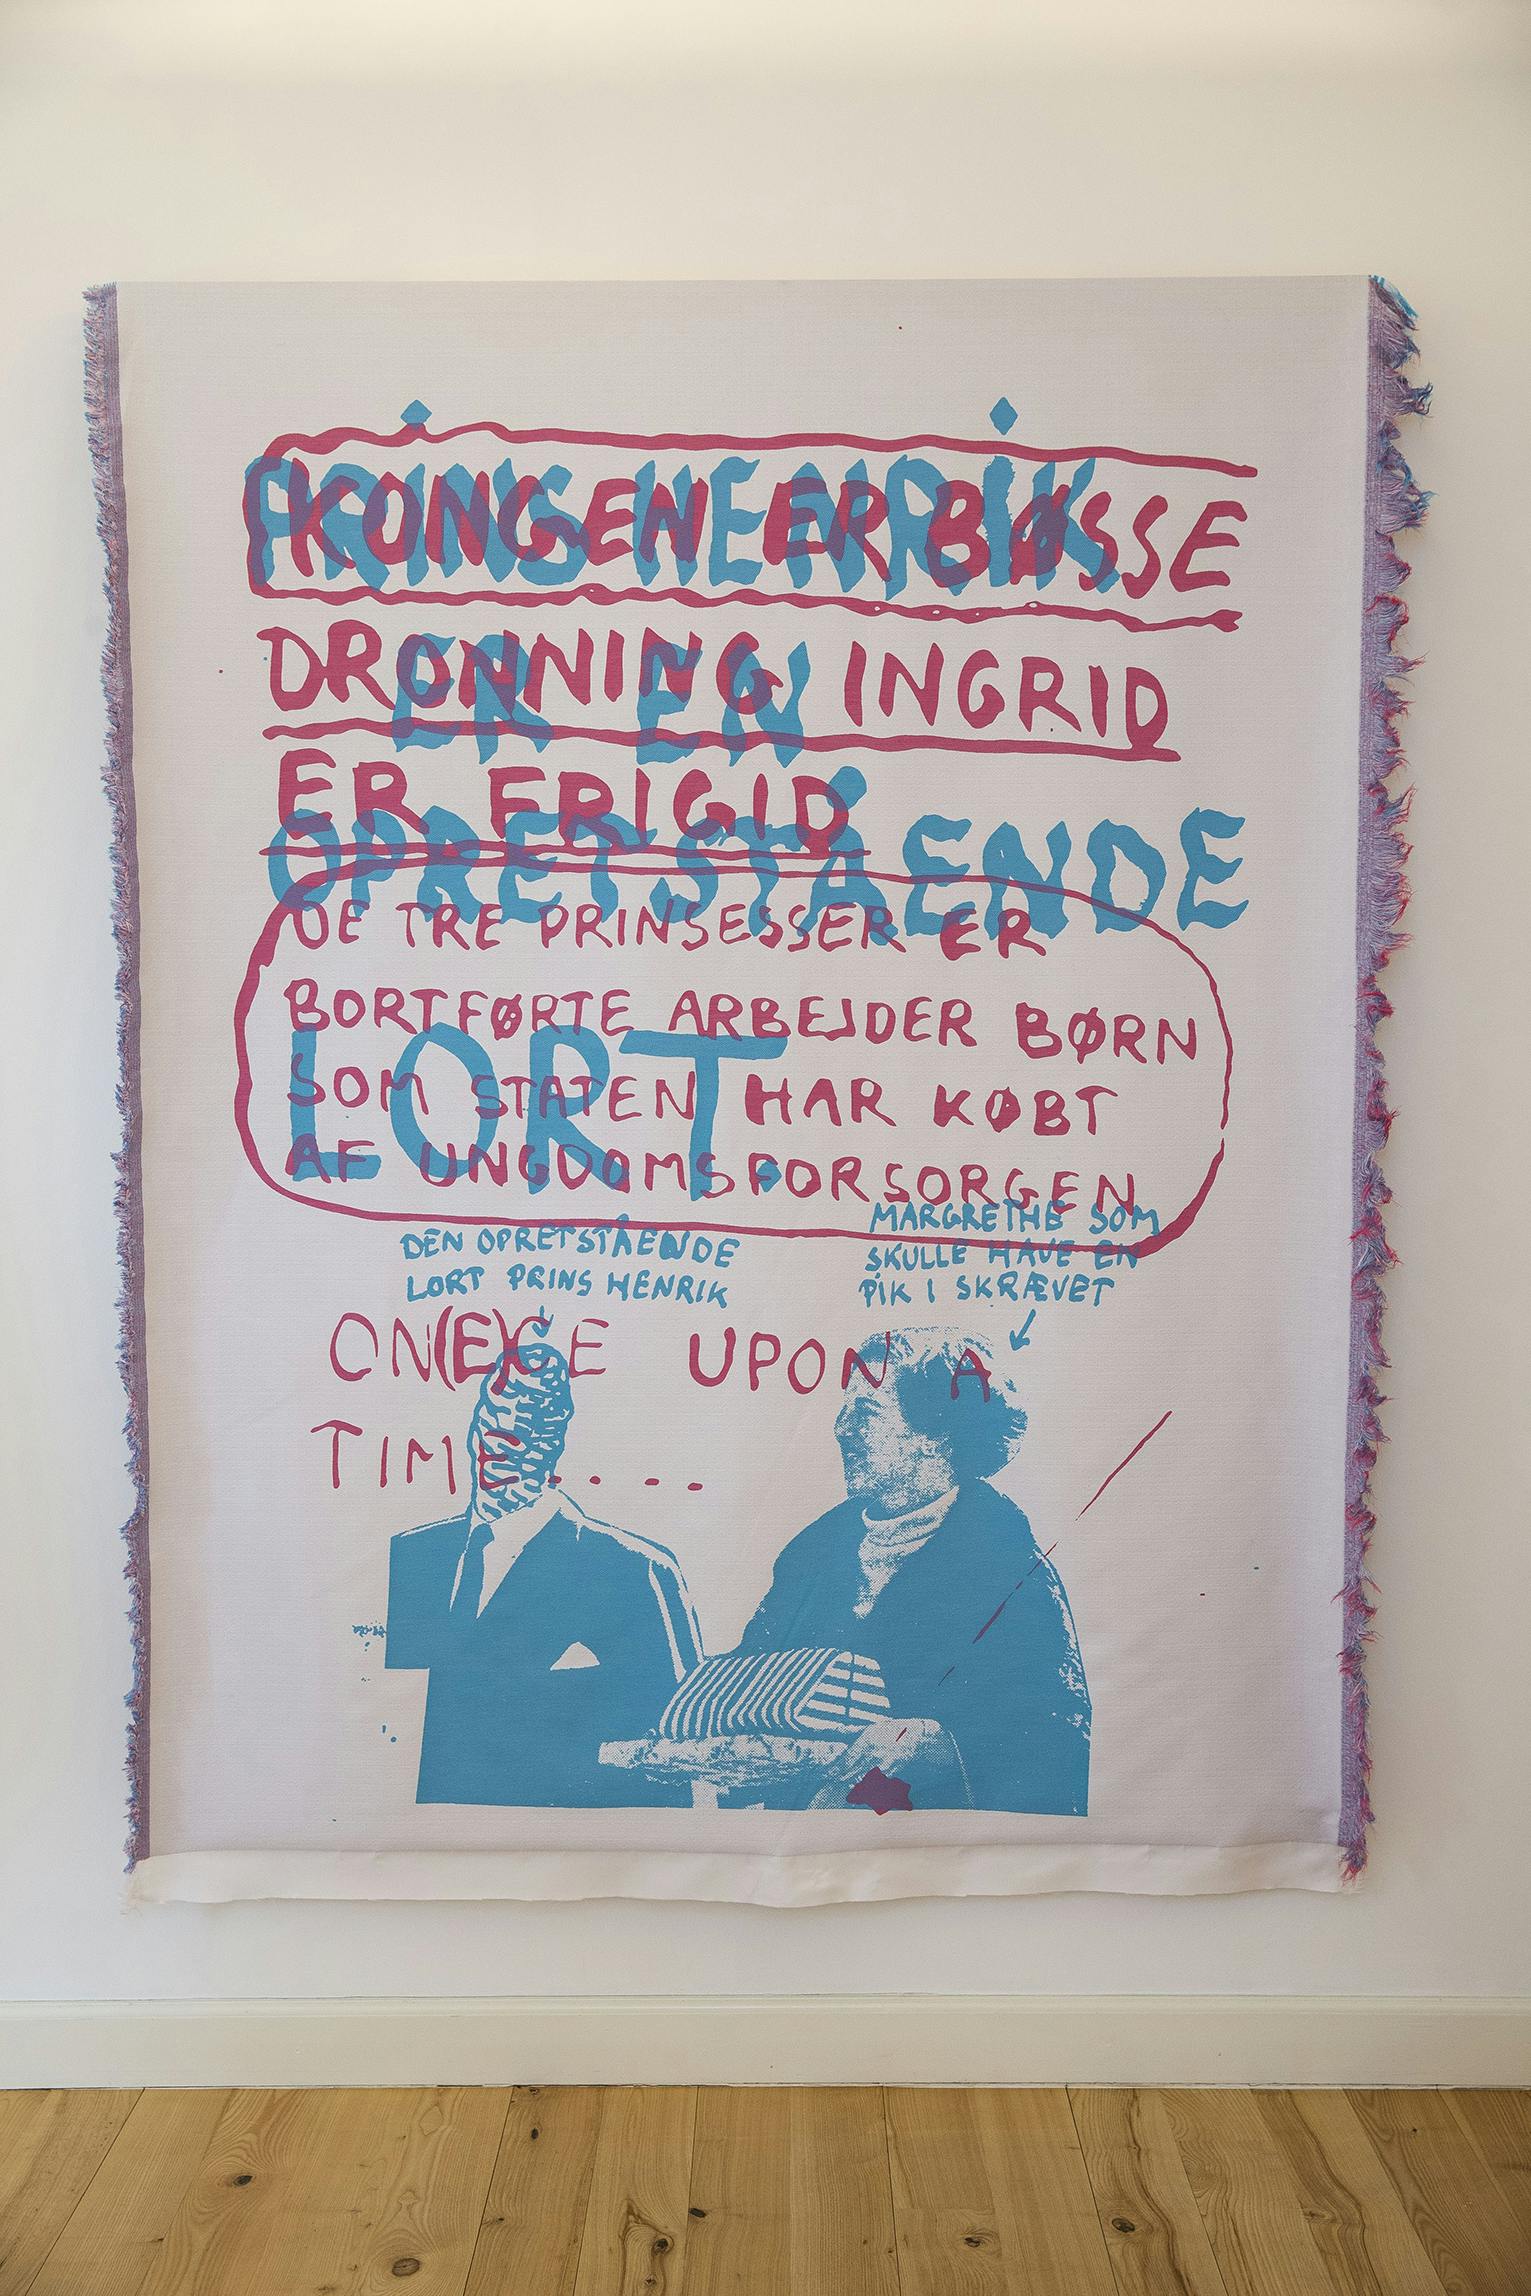 KONGEN ER BØSSE
DRONNING INGRID
ER FRIGID
DE TRE PRINSESSER ER
BORTFØRTE ARBEJDER BØRN
SOM STATEN HAR KØBT
AF UNGDOMSFORSORGEN
ON(E)CE UPON A
TIME.....
PRINS HENRIK
ER EN
OPRETSTÅENDE
LORT.
DEN OPRETSTÅENDE
LORT PRINS HENRIK
MARGRETHE SOM
SKULLE HAVE EN
PIK I SKRÆVET